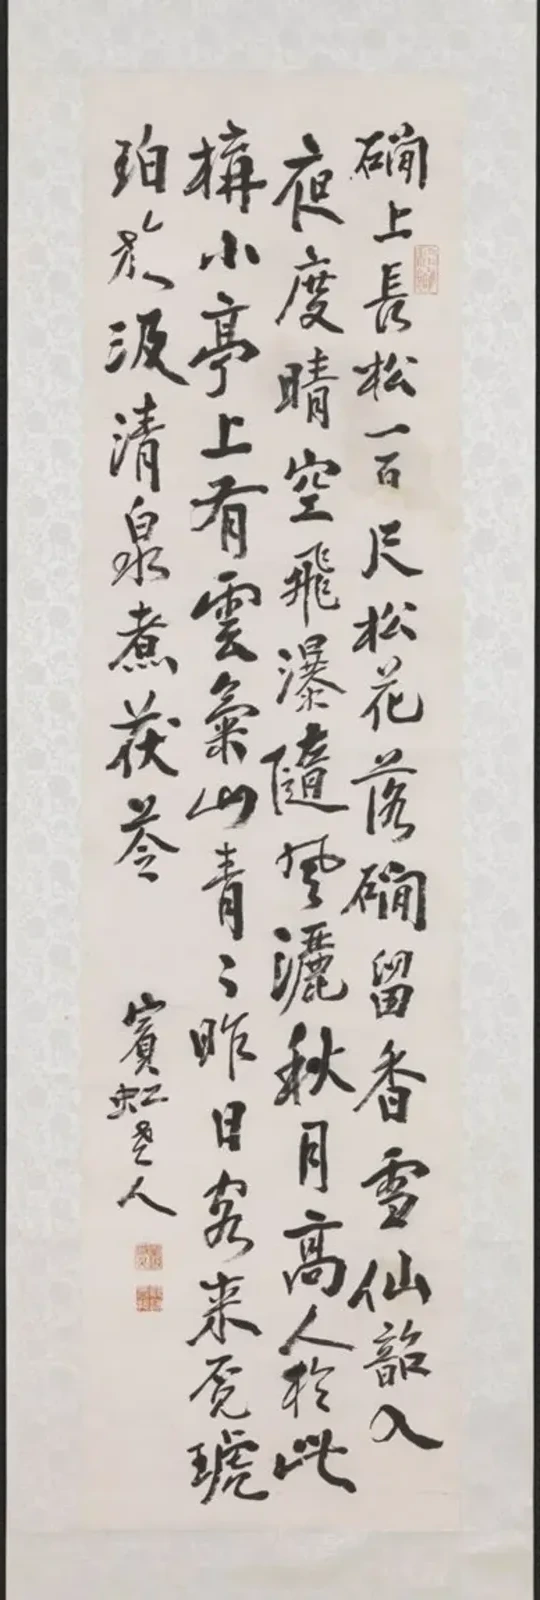 磵上長松一百尺松花落磵留香雪仙韶入
夜度晴空飛瀑隨風灑秋月高人於此
構小亭上有雲氣山青々昨日客來覓琥
珀旋汲清泉煮茯苓
賓虹老人